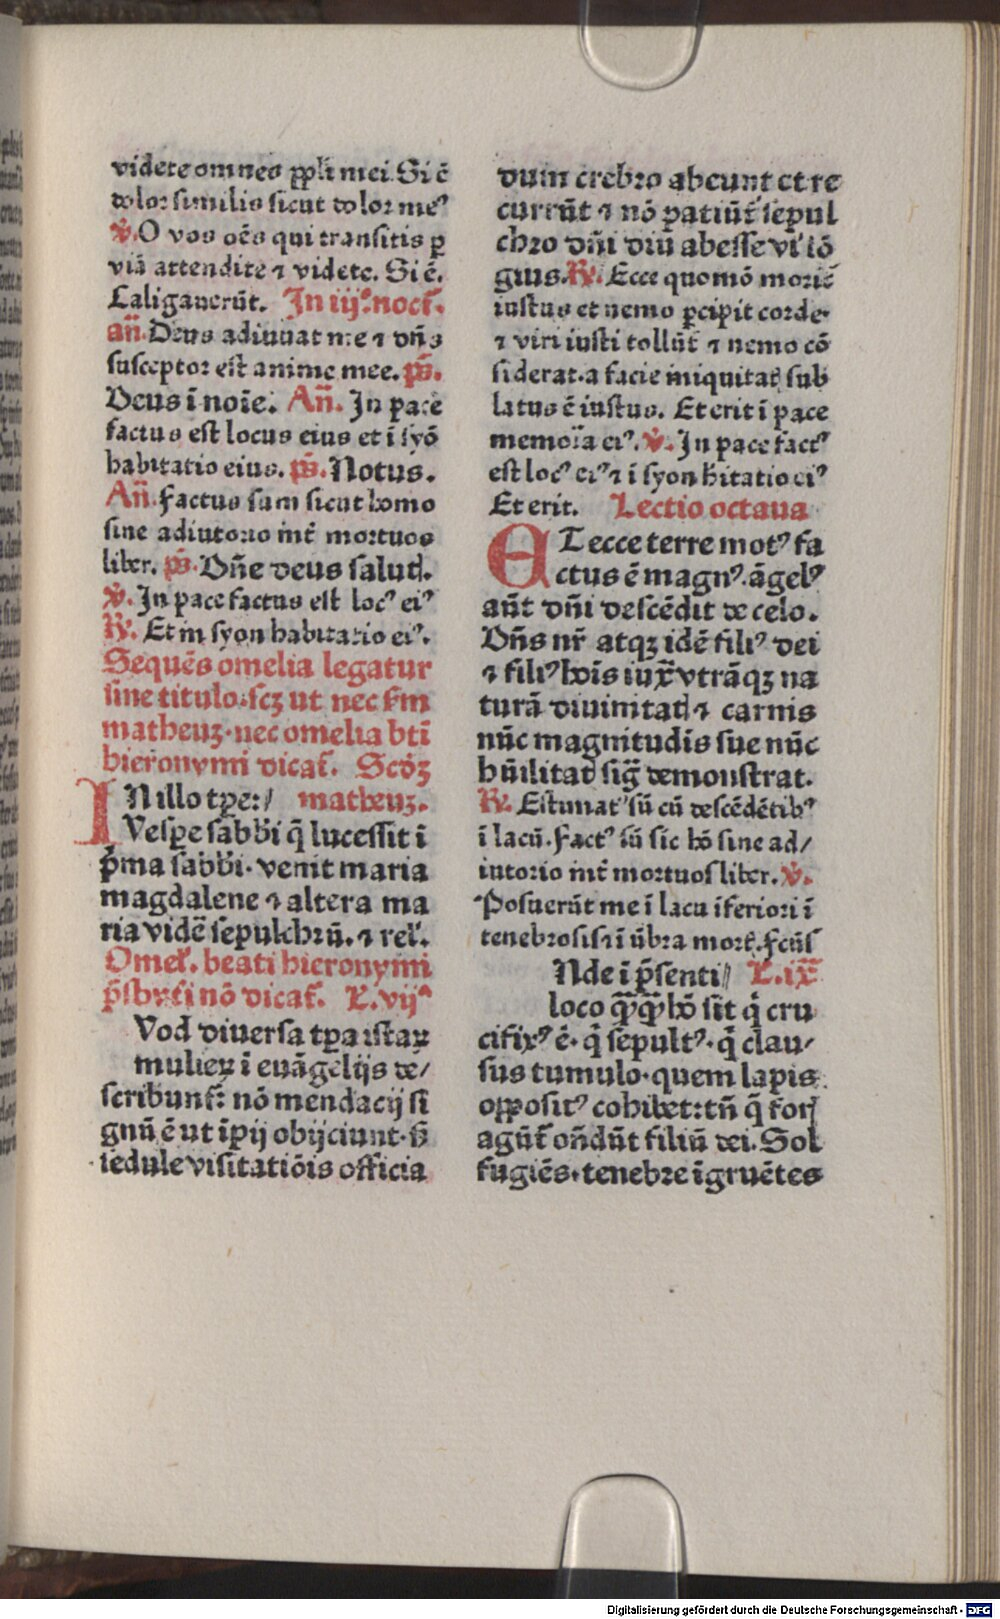 videte omnes ppli mei. Si ē
dolor similis sicut dolor meꝰ
℣. O vos oēs qui transitis ꝑ
viā attendite ⁊ videte. Si ē.
Caligauerūt. In iij.º noct̄.
an̄. Deus adiuuat me ⁊ dn̄s
susceptor est anime mee. ps̄.
Deus ī noīe. An̄. In pace
factus est locus eius et ī syō
habitatio eius. ps̄. Notus.
An̄. Factus sum sicut homo
sine adiutorio int̄ mortuos
liber. ps̄. Dn̄e deus saluti.
℣. In pace factus est locꝰ eiꝰ
℟. Et in syon habitatio eiꝰ.
Sequēs omelia legatur
sine titulo. scꝫ ut nec sm̄
matheuꝫ. nec omelia bt̄i
hieronymi dicat̄. Scd̄ꝫ
IN illo tꝑe:/ matheuꝫ.
Vesꝑe sabbi q̄ lucessit ī
p̄ma sabbi. venit maria
magdalene ⁊ altera ma
ria vidē sepulchrū. ⁊ rel̄.
Omel̄. beati hieronymi
p̄sbyt̄i nō dicat̄. L. vijᵃ
Vod diuersa tꝑa istaꝝ
mulieꝝ ī euāgelijs de/
scribunt̄: nō mendacij si
gnū ē ut īpij obijciunt. sꝫ
sedule visitatiōis officia
dum crebro abeunt et re
currūt ⁊ nō patiūt̄ sepul
chro dn̄i diu abesse vl̄ lō
gius. ℟. Ecce quomō moriē
iustus et nemo ꝑcipit corde.
⁊ viri iusti tollūt̄ ⁊ nemo cō
siderat. a facie iniquitat̄ sub
latus ē iustus. Et erit ī pace
memoria eiꝰ. ℣. In pace factꝰ
est locꝰ eiꝰ ⁊ ī syon hītatio eiꝰ
Et erit. Lectio octaua
ET ecce terre motꝰ fa
ctus ē magnꝰ. āgelꝰ
aūt dn̄i descēdit de celo.
Dn̄s nr̄ atqꝫ idē filiꝰ dei
⁊ filiꝰ hoīs iux̄ vtrāqꝫ na
turā diuinitat̄ ⁊ carnis
nūc magnitudīs sue nūc
hūilitat̄ siḡ demonstrat.
℟. Estimatꝰ sū cū descēdētibꝰ
ī lacū. Factꝰ sū sic hō sine ad/
iutorio int̄ mortuos liber. ℣.
Posuerūt me ī lacu īferiori ī
tenebrosis ⁊ ī ūbra mort̄. Fcūs
Nde ī p̄senti// L. ix̄
loco q̄q̄ hō sit q̇ cru
cifixꝰ ē. q̇ sepultꝰ. q̇ clau/
sus tumulo. quem lapis
oppositꝰ cohibet: tn̄ q̄ foris
agūt̄ on̄dūt filiū dei. Sol
fugiēs. tenebre īgruētes
Digitalisierung gefördert durch die Deutsche Forschungsgemeinschaft - DFG